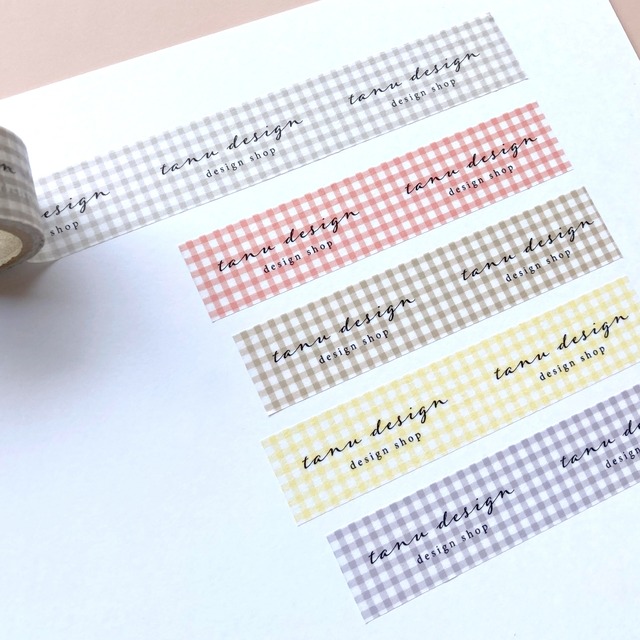 tanu design
design shop
tanu design
design shop
esign
shop
tanu design
design shop
tanu design
design shop
tanu design
design shop
tanu design
design shop
tanu design
design shop
tanu design
design shop
tanu design
design shop
tanu
design